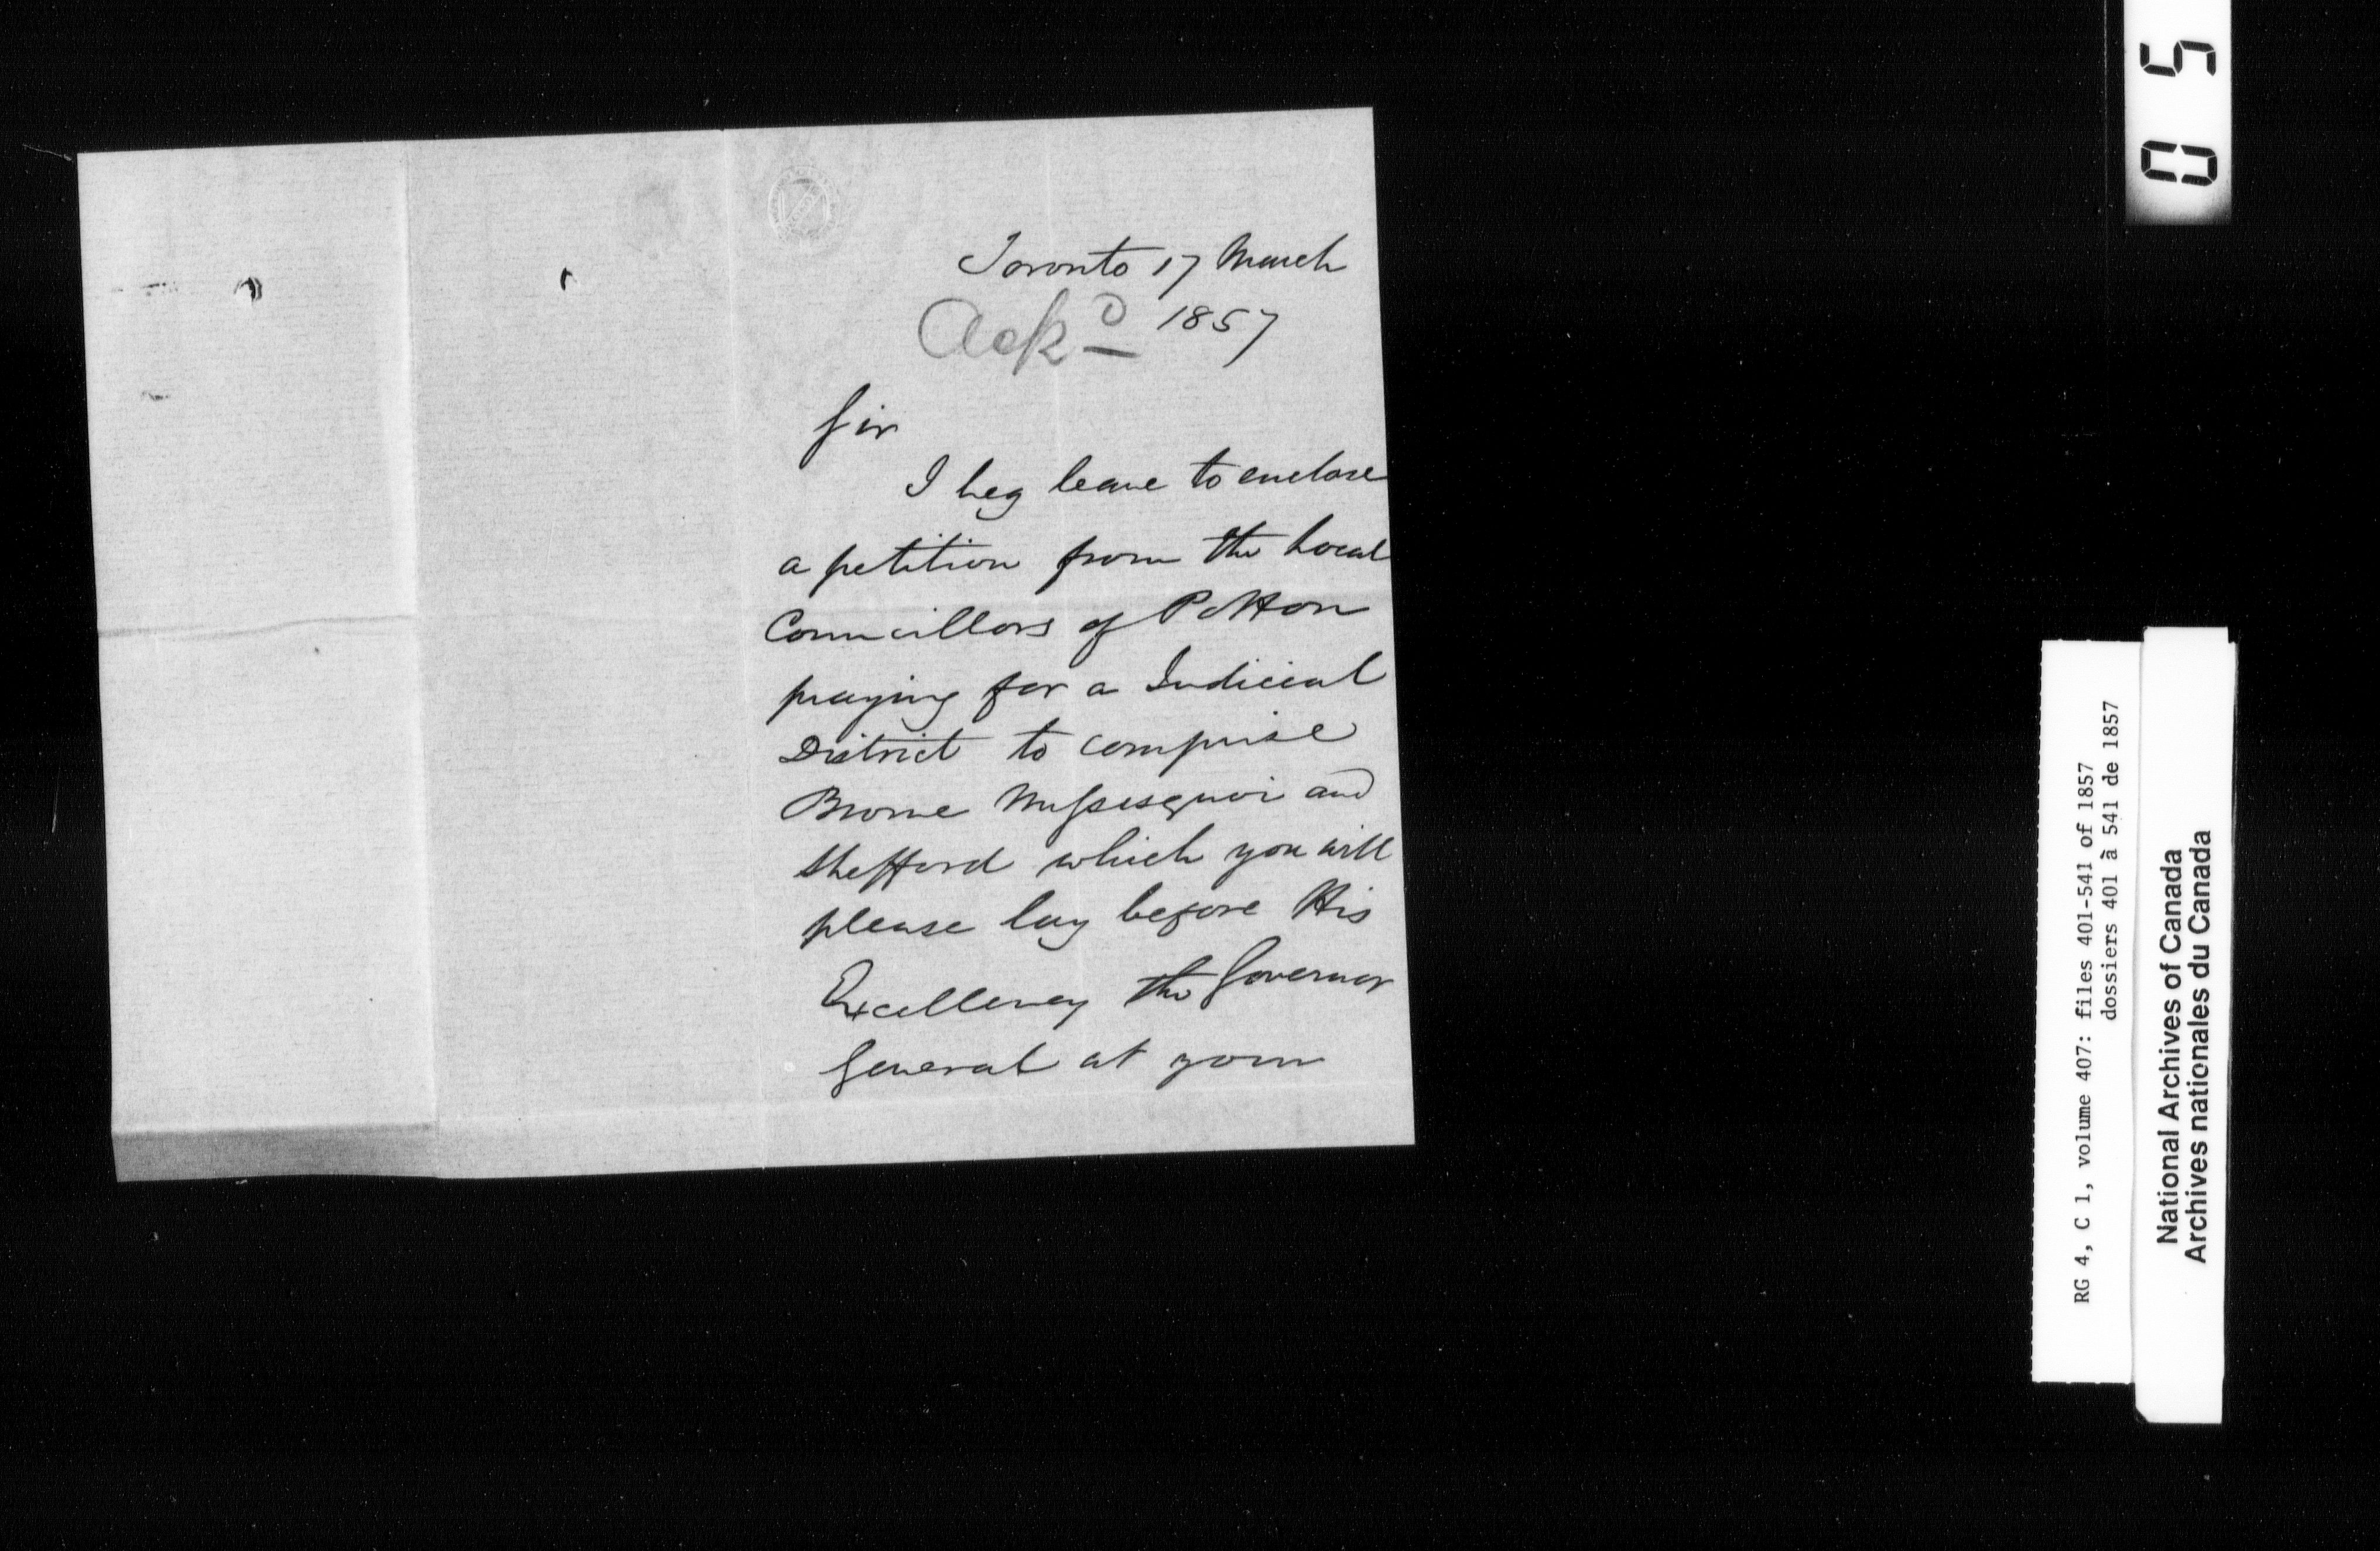 Toronto 17 March
Ackd 1857
Sir
I beg leave to enclose
a petition from the Local
Councillors of Potton
praying for a Judicial
District to comprise
Brome Missisquoi and
Shefford which you will
please lay before His
Excellency the Governor
General at your
05
RG 4, C 1, volume 407: files 401-541 of 1857
dossiers 401 à 541 de 1857
National Archives of Canada
Archives nationales du Canada